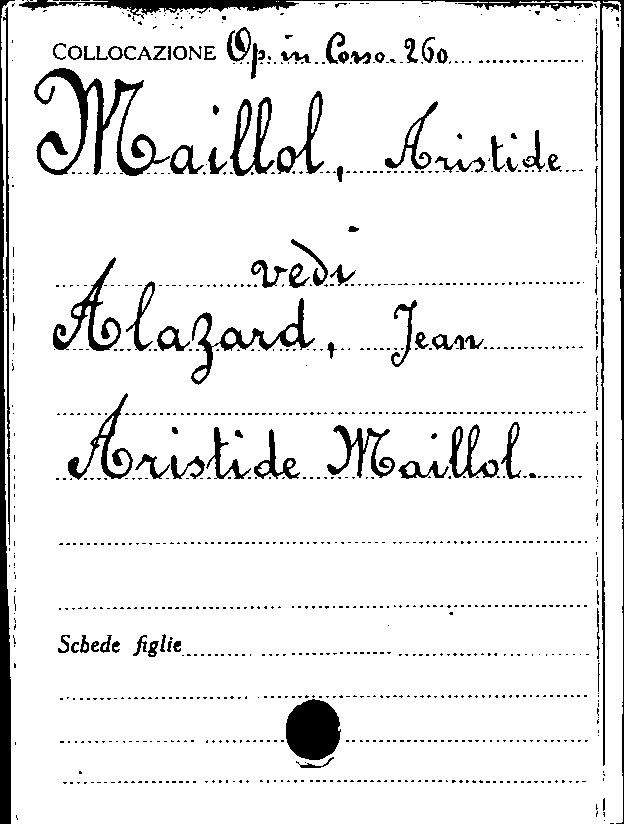 COLLOCAZIONE Op. in Corso. 260
Maillol, Aristide
vedi
Alazard, Jean
Aristide Maillol.
Schede figlie